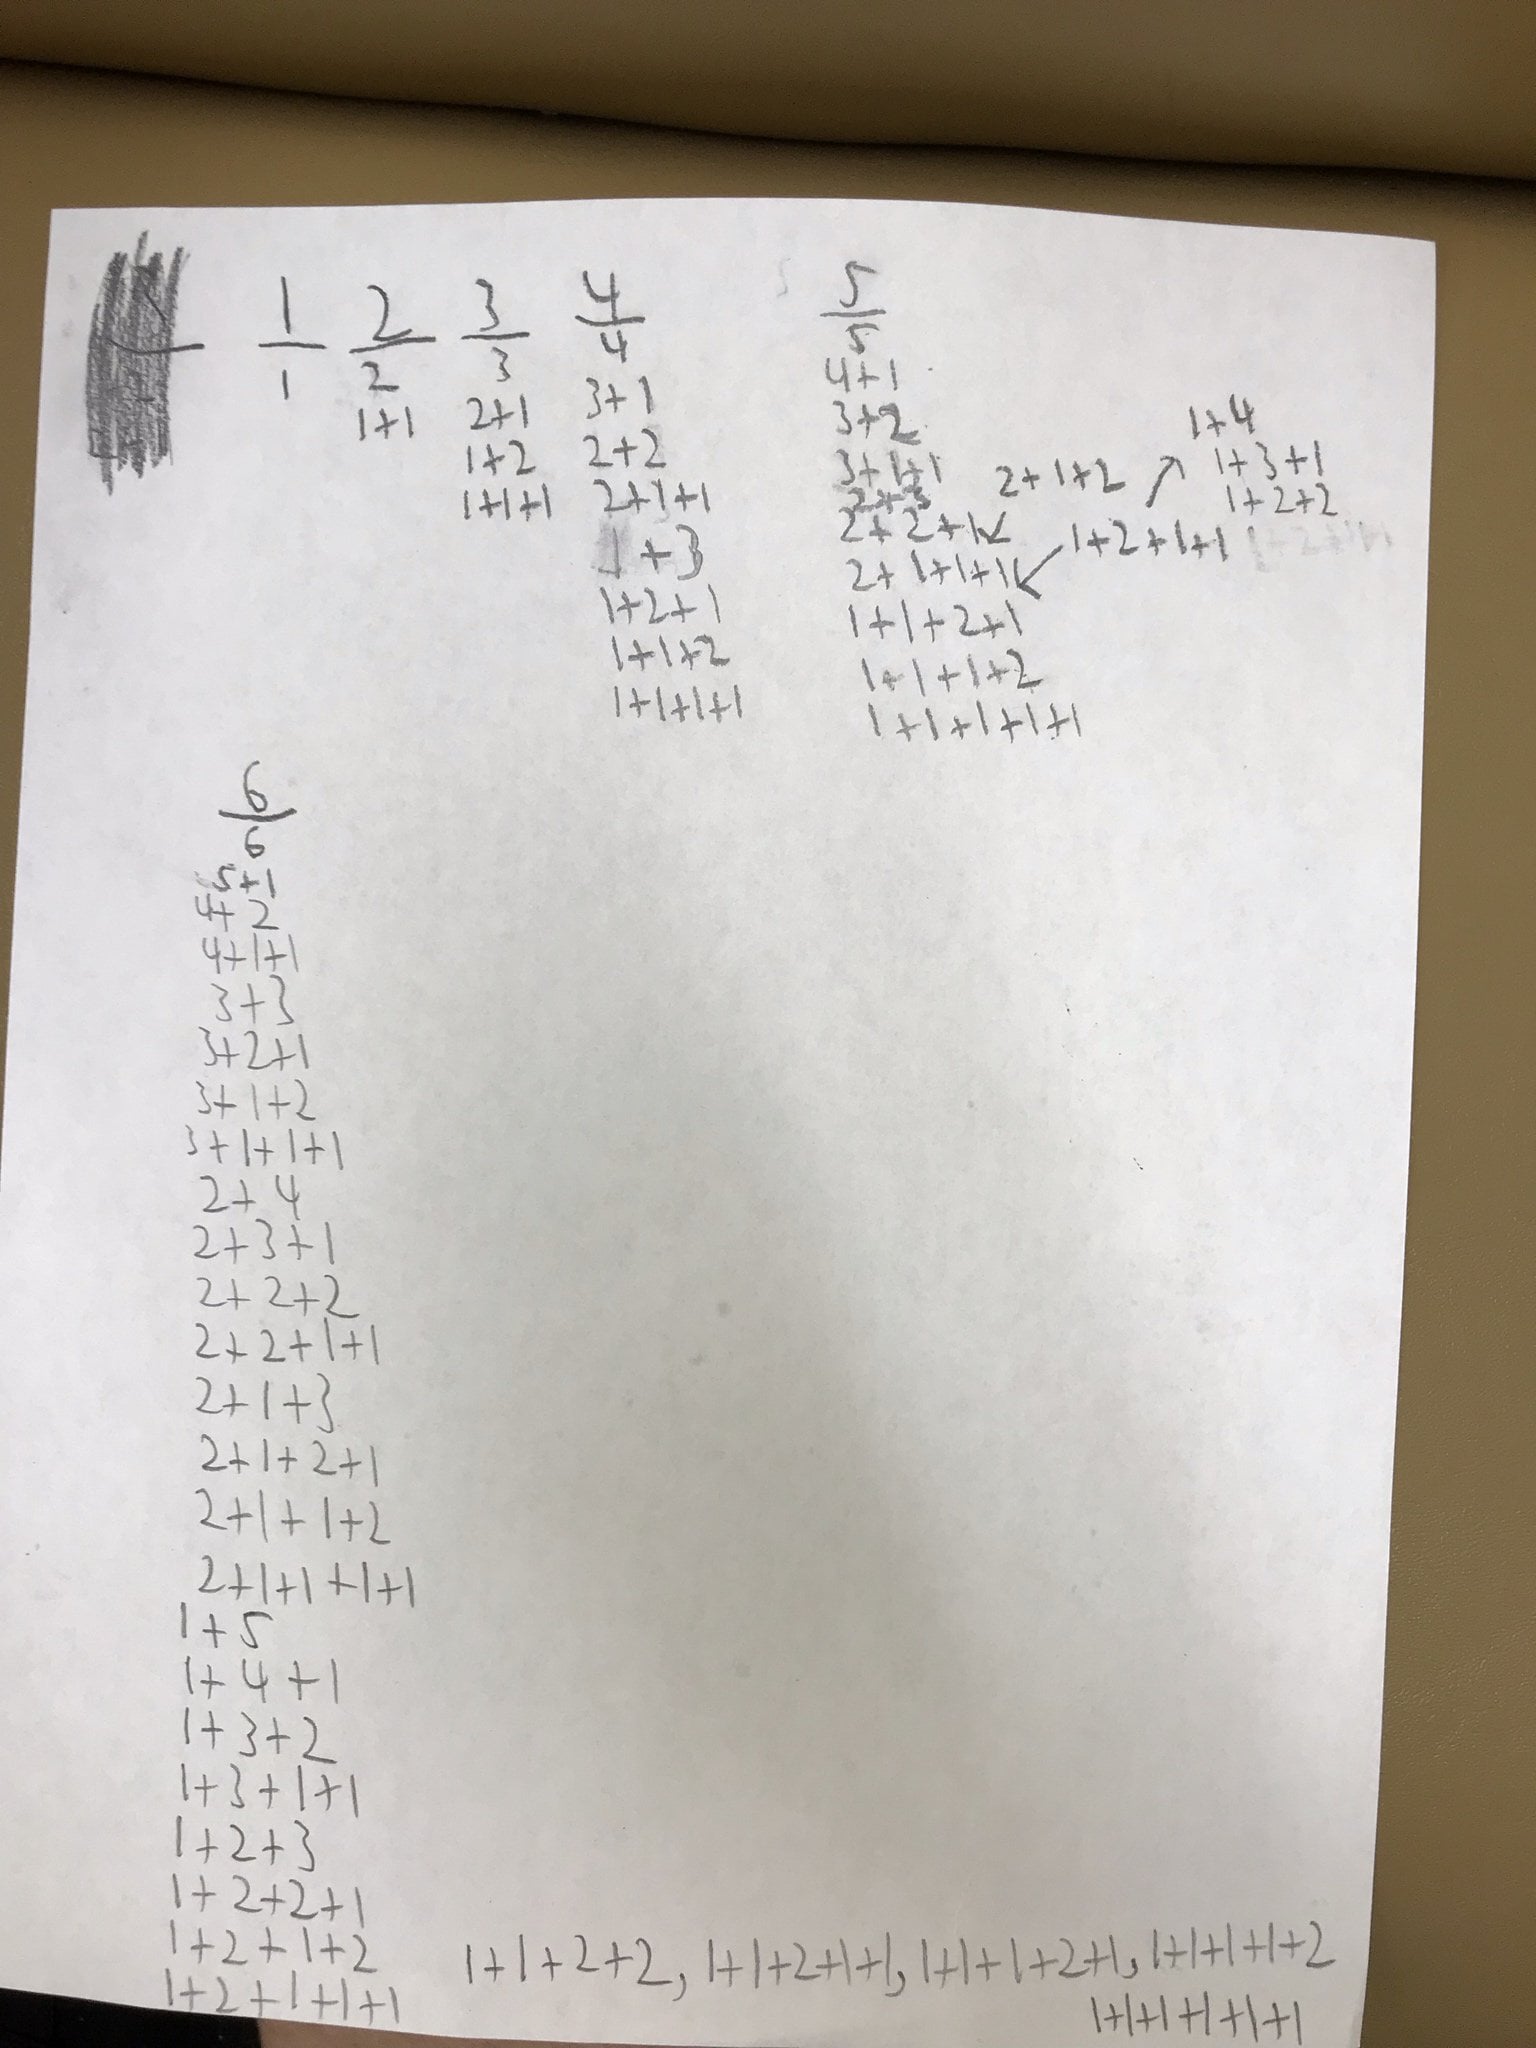 1
1
2
2
1+1
3
3
2+1
1+2
1+1+1
4
4
3+1
2+2
2+1+1
1+3
1+2+1
1+1+2
1+1+1+1
5
5
4+1
3+2
3+1+1
2+3
2+2+1
2+1+1+1
1+1+2+1
1+1+1+2
1+1+1+1+1
2+1+2
1+2+1+1
1+4
1+3+1
1+2+2
6
6
5+1
4+2
4+1+1
3+3
3+2+1
3+1+2
3+1+1+1
2+4
2+3+1
2+2+2
2+2+1+1
2+1+3
2+1+2+1
2+1+1+2
2+1+1+1+1
1+5
1+4+1
1+3+2
1+3+1+1
1+2+3
1+2+2+1
1+2+1+2
1+2+1+1+1
1+1+2+2, 1+1+2+1+1, 1+1+1+2+1, 1+1+1+1+2
1+1+1+1+1+1